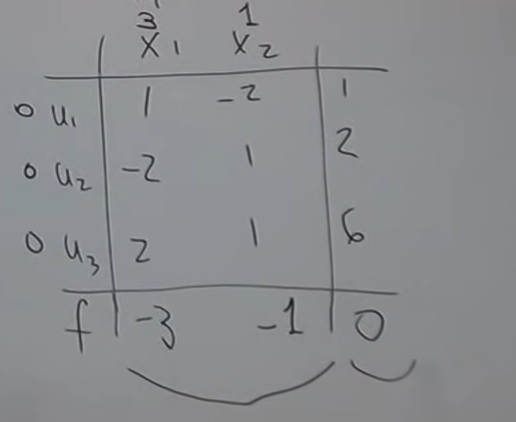 3 1
x₁ x₂
0 u₁ 1 -2 1
0 u₂ -2 1 2
0 u₃ 2 1 6
f -3 -1 0